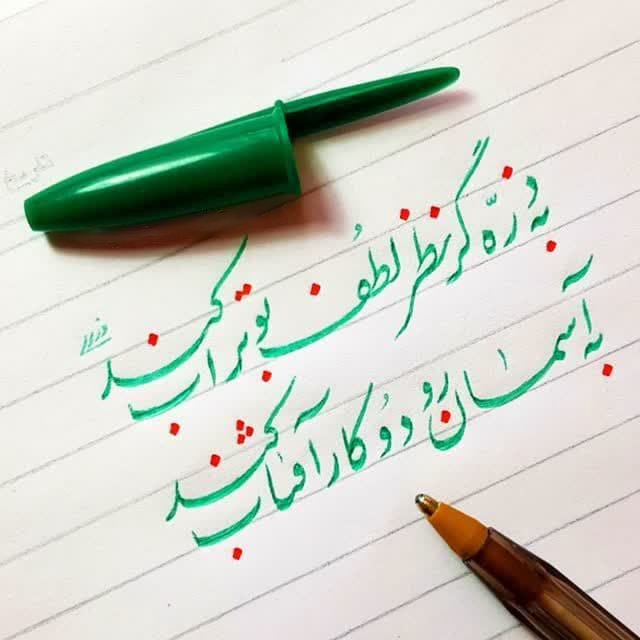 به ذرّه گر نظر لطف بوتراب کند
به آسمان رود و کار آفتاب کند